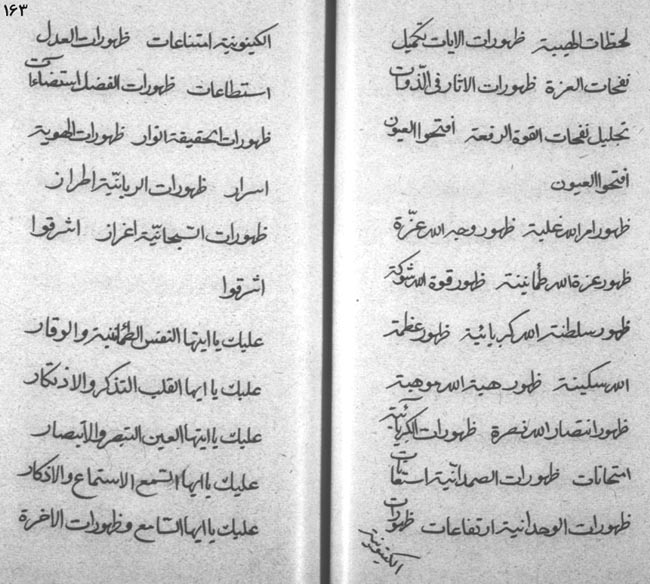 لحظات الهيبة ظهورات الايات تكميل
نفحات العزة ظهورات الاثار فى الذوات
تجليل نفحات القوة الرفعة افتحوا العيون
افتحوا العيون
ظهور امر الله غلبة ظهور وجه الله عزّة
ظهور عزة الله طمأنينة ظهور قوة الله شوكة
ظهور سلطنة الله كبريائية ظهور عظمة
الله سكينة ظهور هيبة الله موهبة
ظهور انتصار الله نصرة ظهورات الكبريائية
امتحانات ظهورات الصمدانيّة
ظهورات الوحدانية ارتفاعات ظهورات
الكينونية
١٦٣
الكينونية امتناعات ظهورات العدل
استطاعات ظهورات الفضل استضاءات
ظهورات الحقيقة انوار ظهورات الهوية
اسرار ظهورات الربانيّة اطراز
ظهورات السبحانيّة اعزاز اشرقوا
اشرقوا
عليك يا ايتها النفس الطمأنينة والوقار
عليك يا ايها القلب التذكر والاذتكار
عليك يا ايتها العين التبصر والابتصار
عليك يا ايها السمع الاستماع والاذكار
عليك يا ايها السامع وظهورات الاخرة